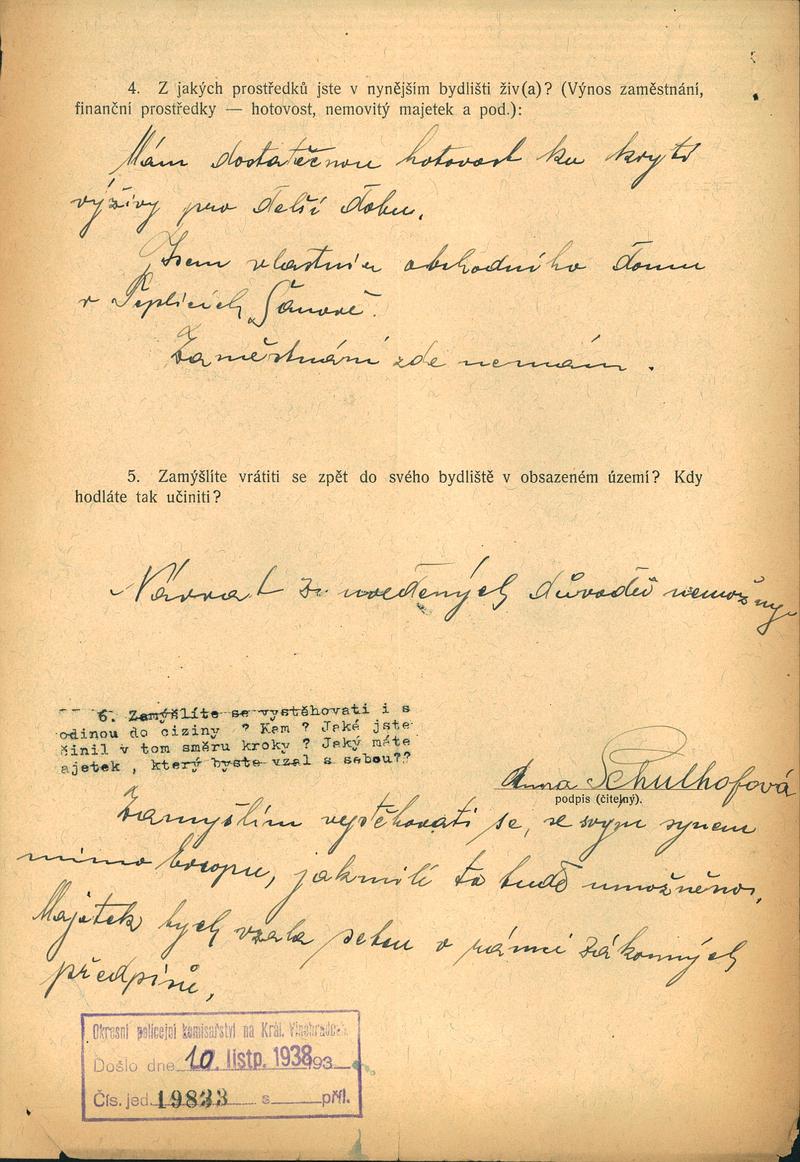 4. Z jakých prostředků jste v nynějším bydlišti živ(a)? (Výnos zaměstnání,
finanční prostředky — hotovost, nemovitý majetek a pod.):
Mám dostatečnou hotovost ku krytí
výživy pro delší dobu.
Jsem vlastnicí obchodního domu
v Teplicích Šanově.
Zaměstnání zde nemám.
5. Zamýšlíte vrátiti se zpět do svého bydliště v obsazeném území? Kdy
hodláte tak učiniti?
Návrat z uvedených důvodů nemožný
6. Zamýšlíte se vystěhovati i s
odinou do ciziny ? Kam ? Jaké jste
činil v tom směru kroky ? Jaký máte
ajetek , který byste vzal s sebou??
Anna Schulhofová
podpis (čitelný).
Zamýšlím vystěhovati se, se svým synem
mimo Evropu, jakmile to bude umožněno.
Majetek bych vzala sebou v rámci zákonných
předpisů.
Okresní policejní komisařství na Král. Vinohradech
Došlo dne 10. listp. 1938 193
Čís. jed. 19833 s příl.